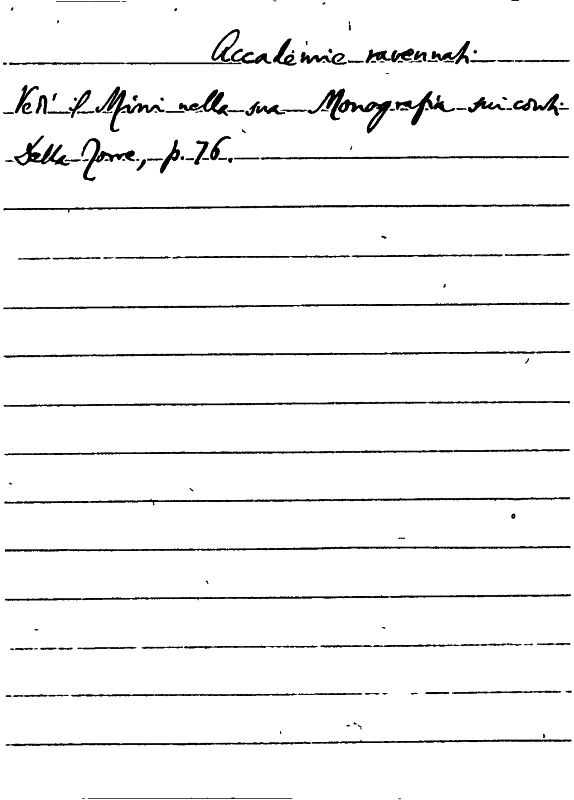 Accademie ravennati.
Vedi il Mini nella sua Monografia sui conti
Della Torre, p. 76.